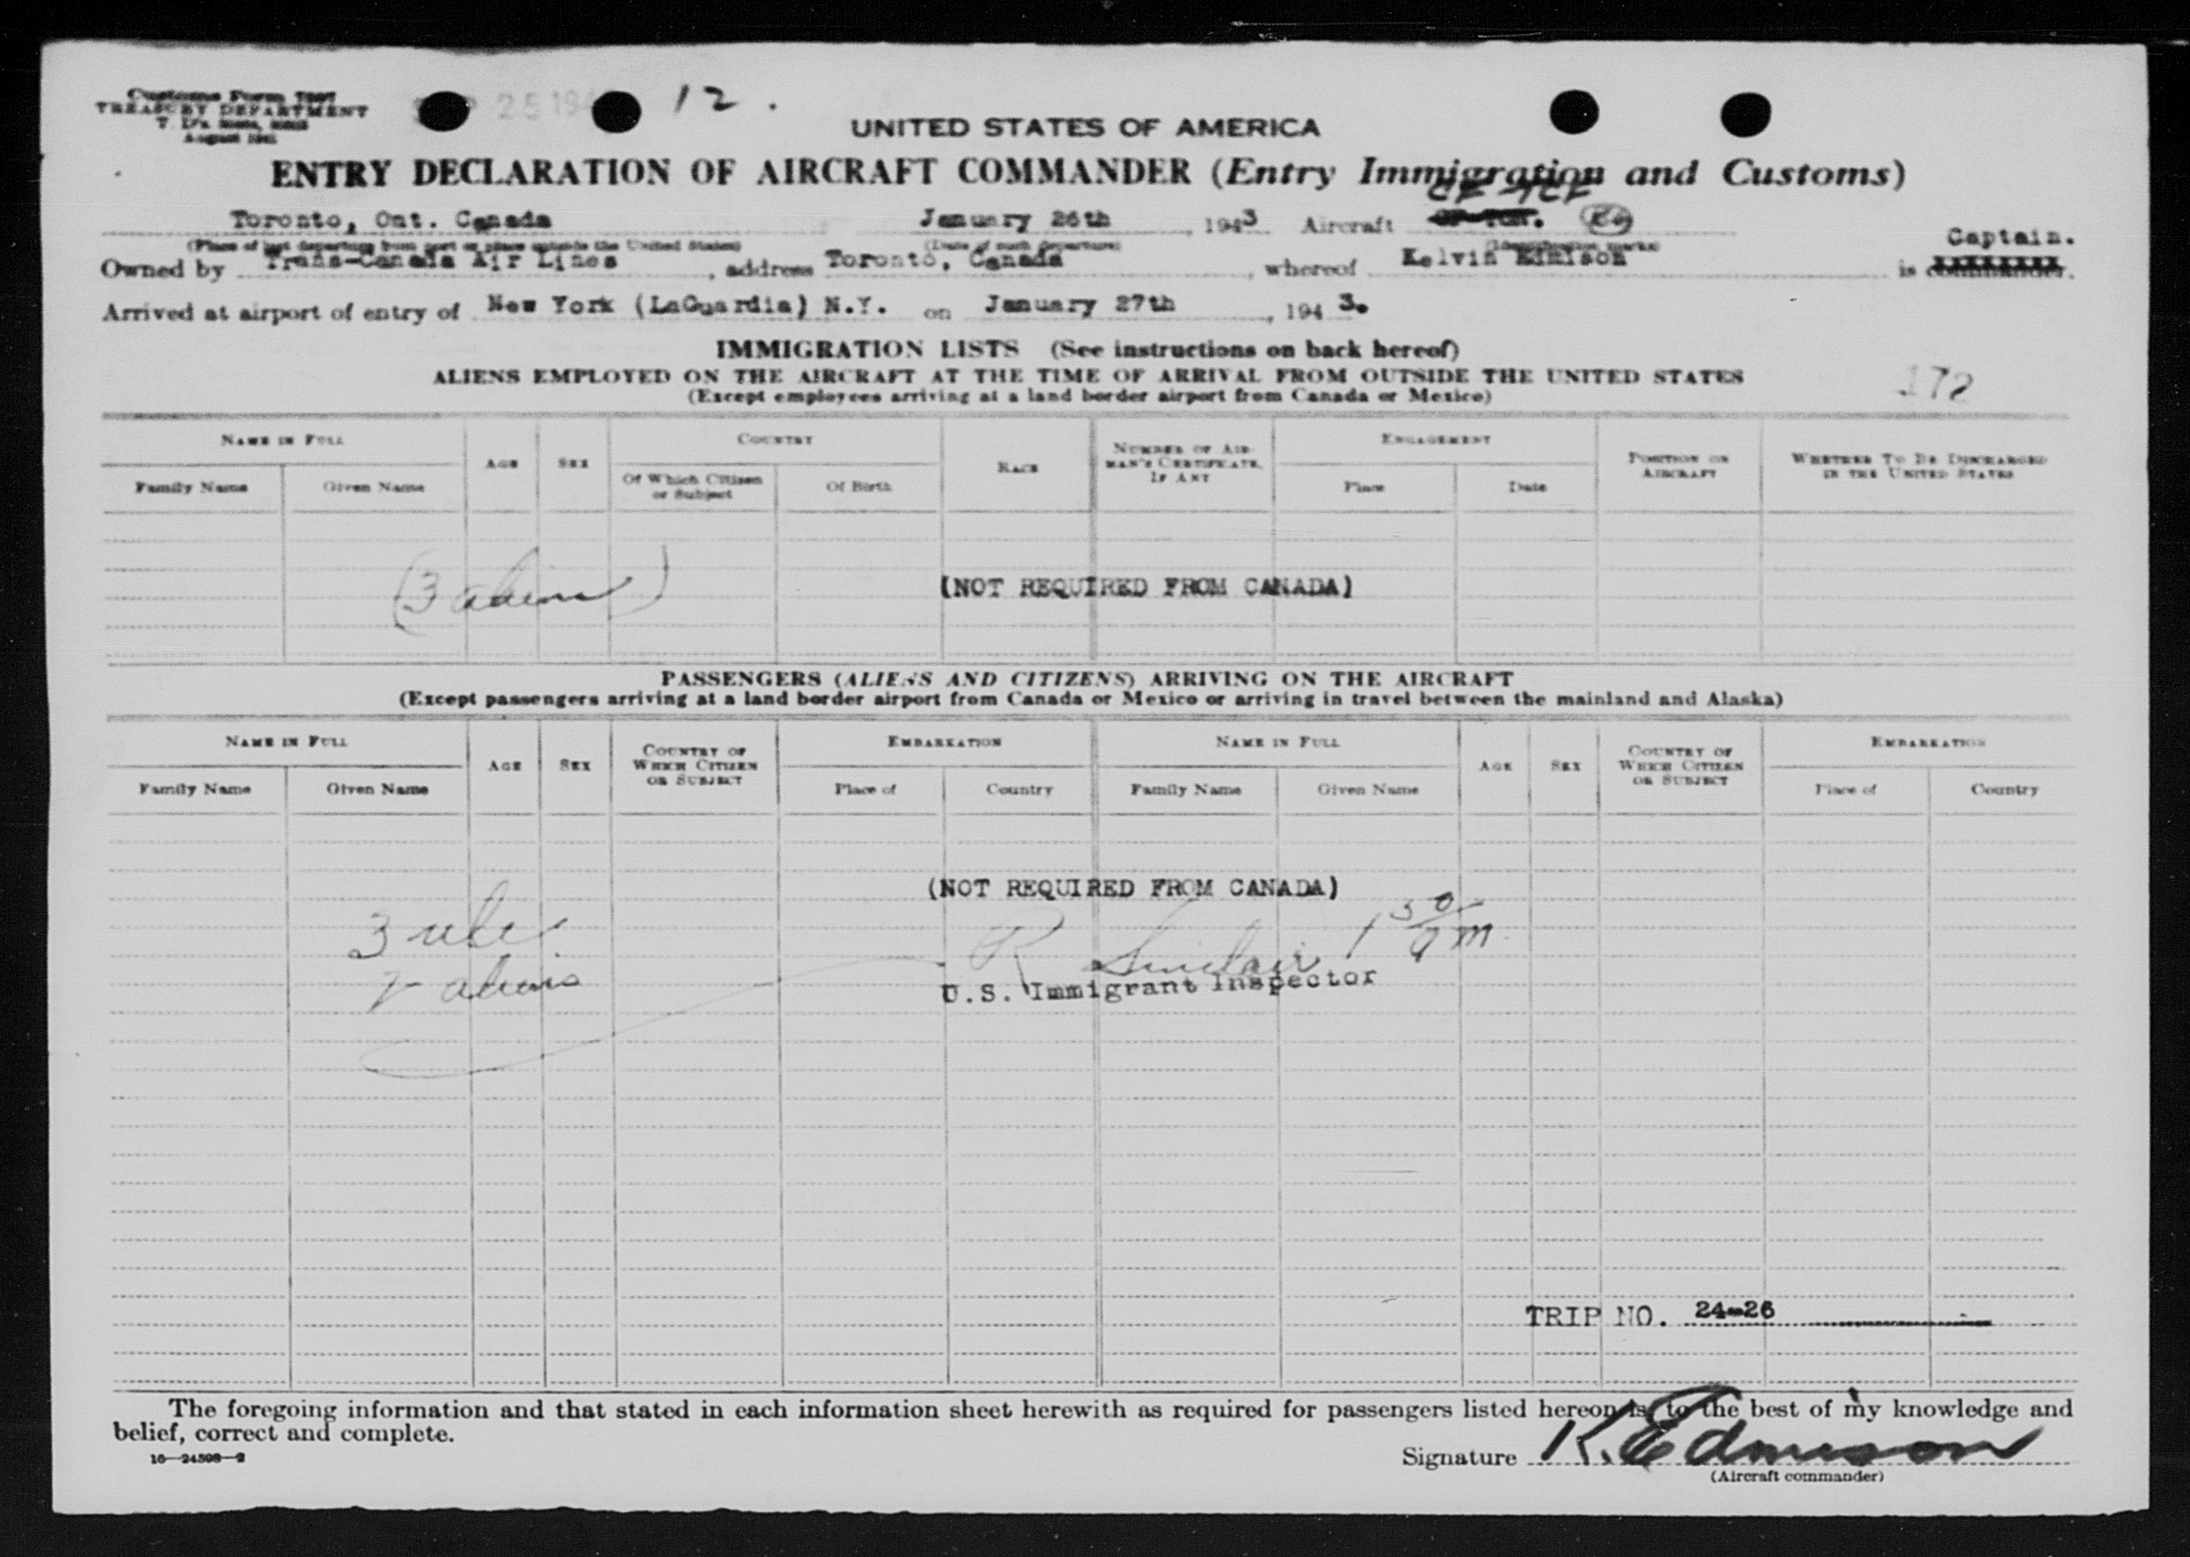 Customs Form 7507
TREASURY DEPARTMENT
August 1941
25 194
12.
UNITED STATES OF AMERICA
ENTRY DECLARATION OF AIRCRAFT COMMANDER (Entry Immigration and Customs)
CF-TCF
Toronto, Ont. Canada January 26th, 1943 Aircraft
(Place of last departure from port or place outside the United States) (Date of such departure) (Identification marks)
Captain.
Owned by Trans-Canada Air Lines, address Toronto, Canada, whereof Kelvin Edmison is commander.
Arrived at airport of entry of New York (LaGuardia) N.Y. on January 27th, 1943.
IMMIGRATION LISTS (See instructions on back hereof)
ALIENS EMPLOYED ON THE AIRCRAFT AT THE TIME OF ARRIVAL FROM OUTSIDE THE UNITED STATES
172
(Except employees arriving at a land border airport from Canada or Mexico)
NAME IN FULL AGE SEX COUNTRY RACE NUMBER OF AIRMAN'S CERTIFICATE, IF ANY ENGAGEMENT POSITION ON AIRCRAFT WHETHER TO BE DISCHARGED IN THE UNITED STATES
Family Name Given Name Of Which Citizen or Subject Of Birth Place Date
(3 aliens) (NOT REQUIRED FROM CANADA)
PASSENGERS (ALIENS AND CITIZENS) ARRIVING ON THE AIRCRAFT
(Except passengers arriving at a land border airport from Canada or Mexico or arriving in travel between the mainland and Alaska)
NAME IN FULL AGE SEX COUNTRY OF WHICH CITIZEN OR SUBJECT EMBARKATION NAME IN FULL AGE SEX COUNTRY OF WHICH CITIZEN OR SUBJECT EMBARKATION
Family Name Given Name Place of Country Family Name Given Name Place of Country
(NOT REQUIRED FROM CANADA)
3 usc
R Sinclair 1 30 am
aliens
U.S. Immigrant Inspector
TRIP NO. 24-26
The foregoing information and that stated in each information sheet herewith as required for passengers listed hereon is, to the best of my knowledge and
belief, correct and complete.
16-24508-2
Signature K. Edmison
(Aircraft commander)